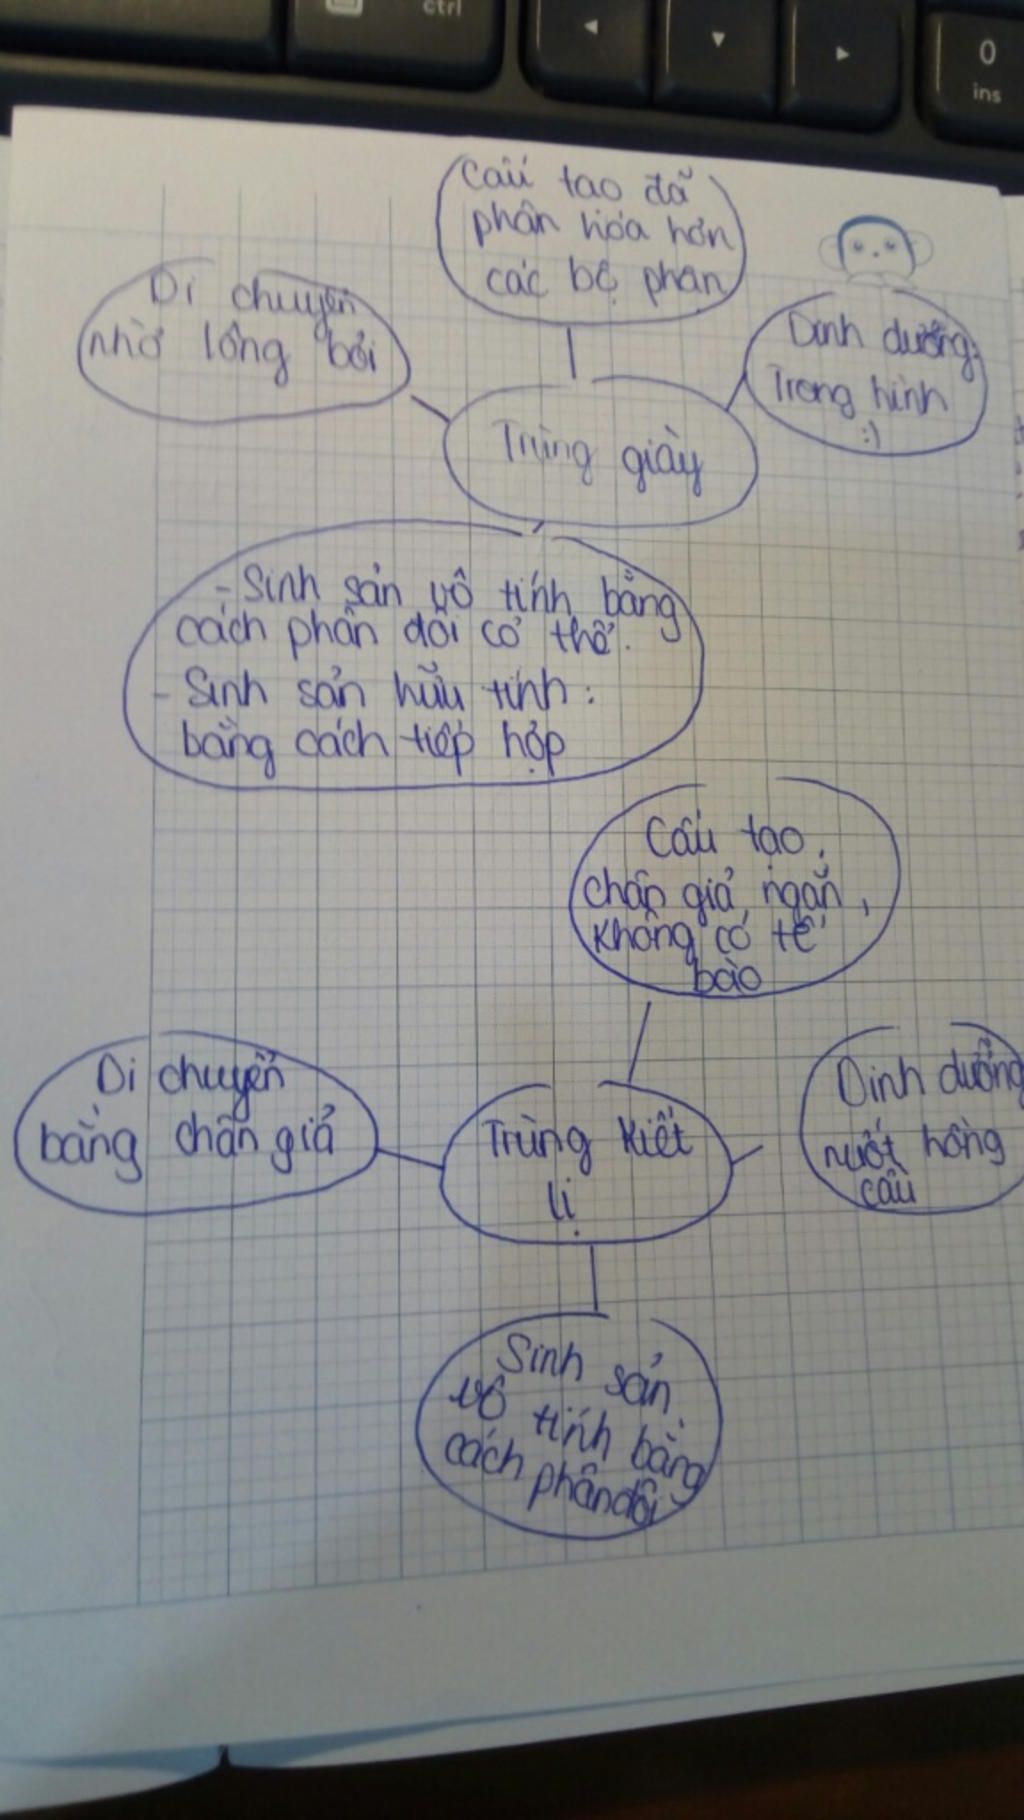 ctrl
0
ins
Cấu tạo đã
phân hóa hơn
các bộ phan
Di chuyển
nhờ lông bơi
Dinh dưỡng:
Trong hình
:)
Trùng giày
- Sinh sản vô tính bằng
cách phân đôi cơ thể.
- Sinh sản hữu tính:
bằng cách tiếp hợp
Cấu tạo.
chân giả ngắn,
Không có tế
bào
Di chuyển
bằng chân giả
Trùng Kiết
lị
Dinh dưỡng
nuốt hồng
cầu
Sinh sản.
vô tính bằng
cách phân đôi